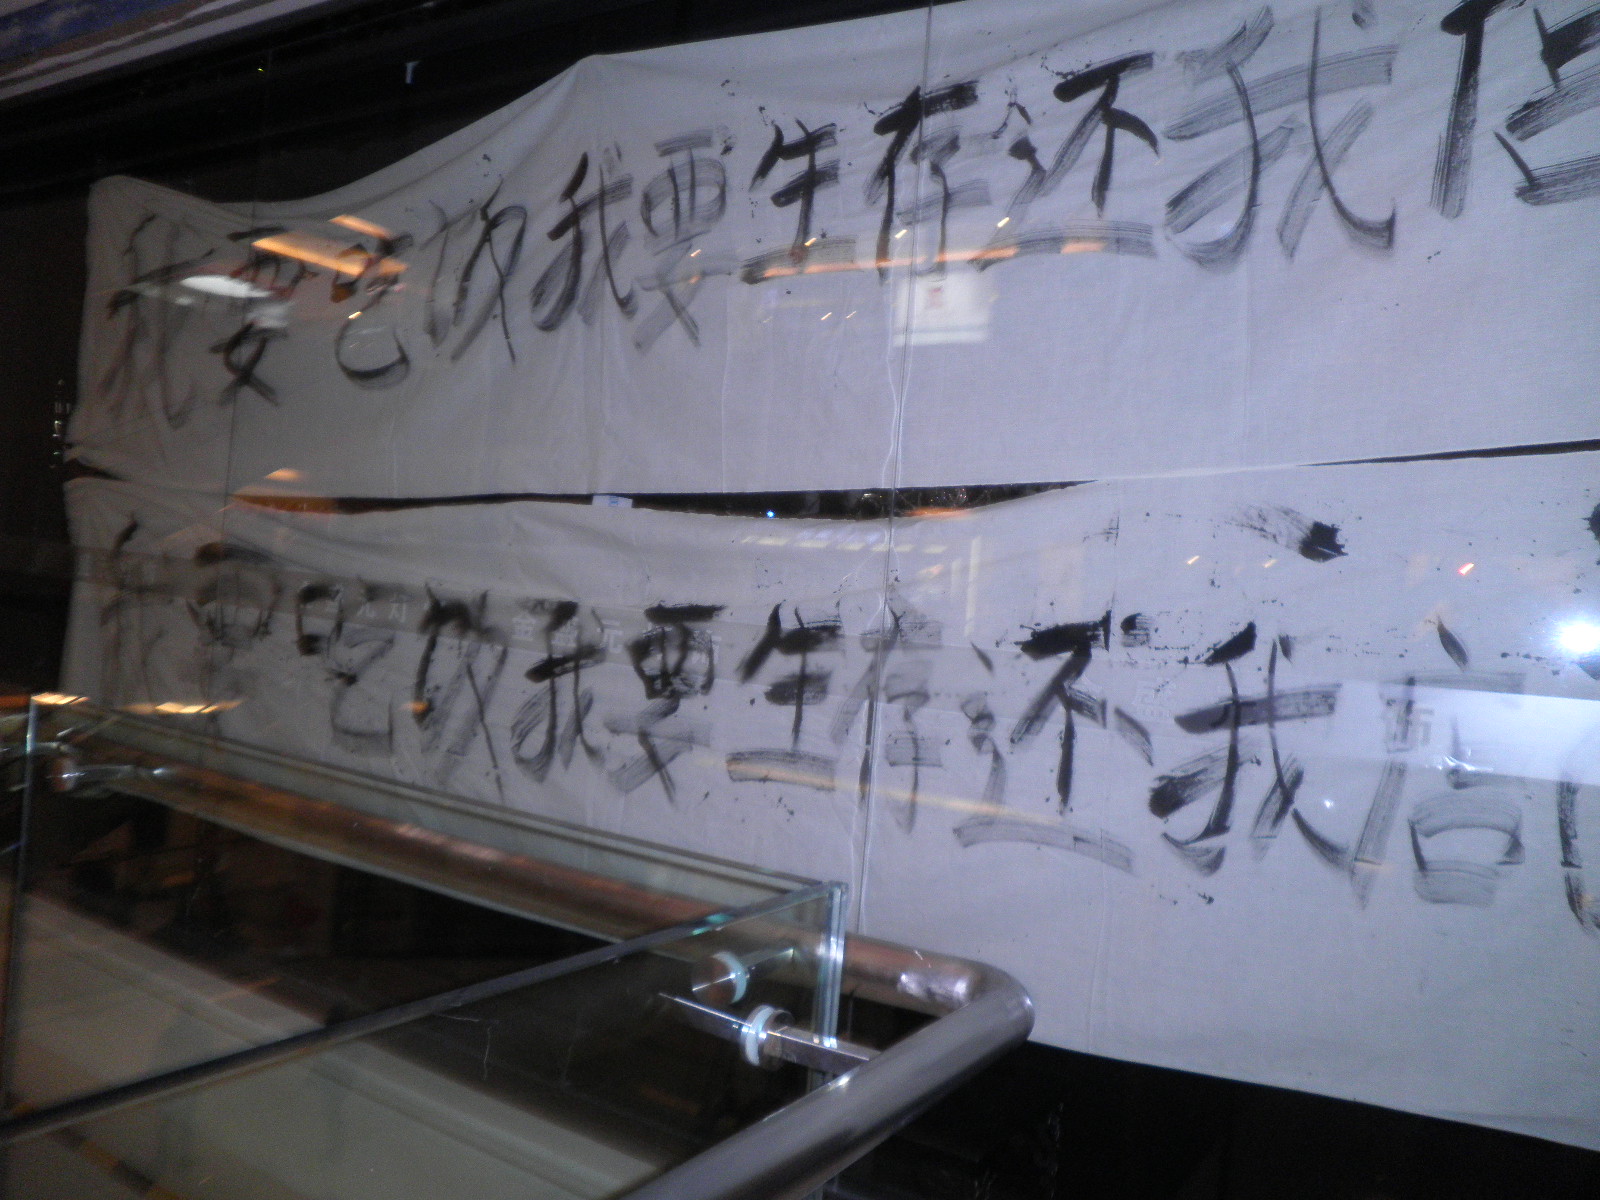 我要吃饭我要生存还我
我要吃饭我要生存还我